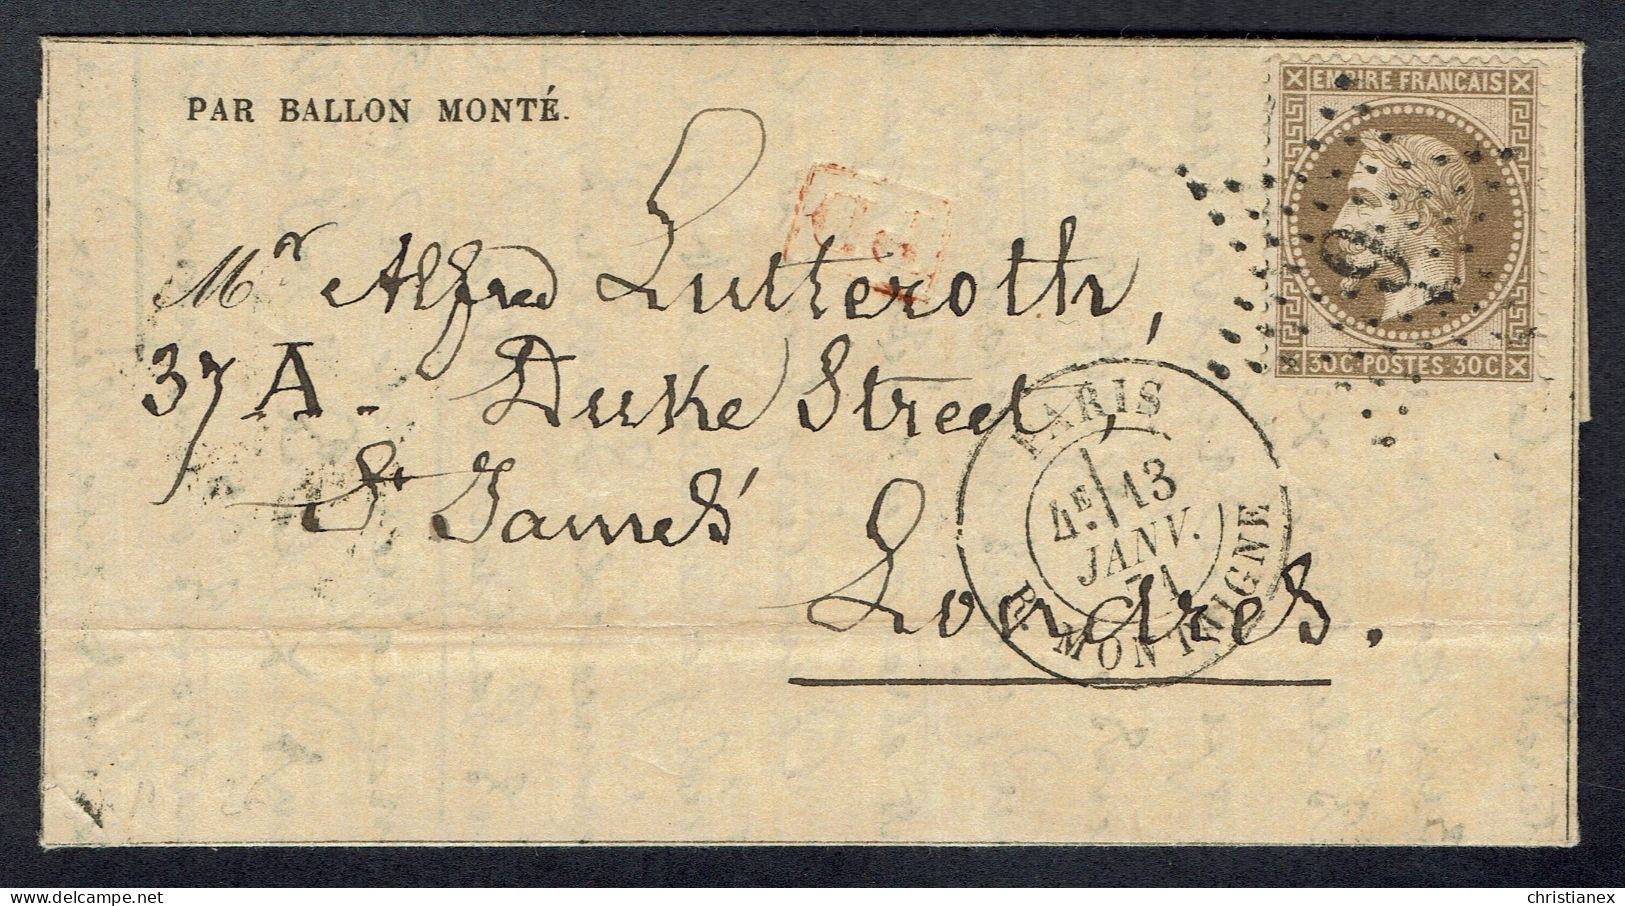 PAR BALLON MONTÉ.
EMPIRE FRANÇAIS
30C·POSTES·30C
P.D.
Mr Alfred Lutteroth,
37 A. Duke Street,
St James'
Londres.
PARIS
4E 13
JANV.
71
R. MONTAIGNE
christianex